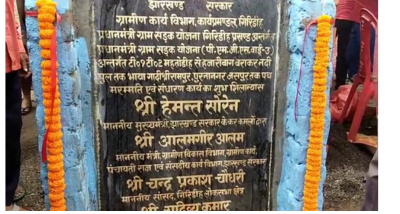 झारखण्ड सरकार
ग्रामीण कार्य विभाग, कार्यप्रमण्डल गिरिडीह
प्रधानमंत्री ग्राम सड़क योजना गिरिडीह प्रखण्ड अन्तर्गत
प्रधानमंत्री ग्राम सड़क योजना (पी.एम.जी.एस.वाई-३)
अन्तर्गत टी०१टी०२ महतोडीह से हजारीबाग बराकर नदी
पुल तक भाया गादी श्रीरामपुर, पुरनानगर जसपुर तक पथ
मरम्मति एवं संधारण कार्य का शुभ शिलान्यास
श्री हेमन्त सोरेन
माननीय मुख्यमंत्री, झारखण्ड सरकार के कर कमलों द्वारा
श्री आलमगीर आलम
माननीय मंत्री, ग्रामीण विकास विभाग, ग्रामीण कार्य,
पंचायती राज एवं संसदीय कार्य विभाग, झारखण्ड सरकार
श्री चन्द्र प्रकाश चौधरी
माननीय सांसद गिरिडीह लोकसभा क्षेत्र
श्री सुदिव्य कुमार